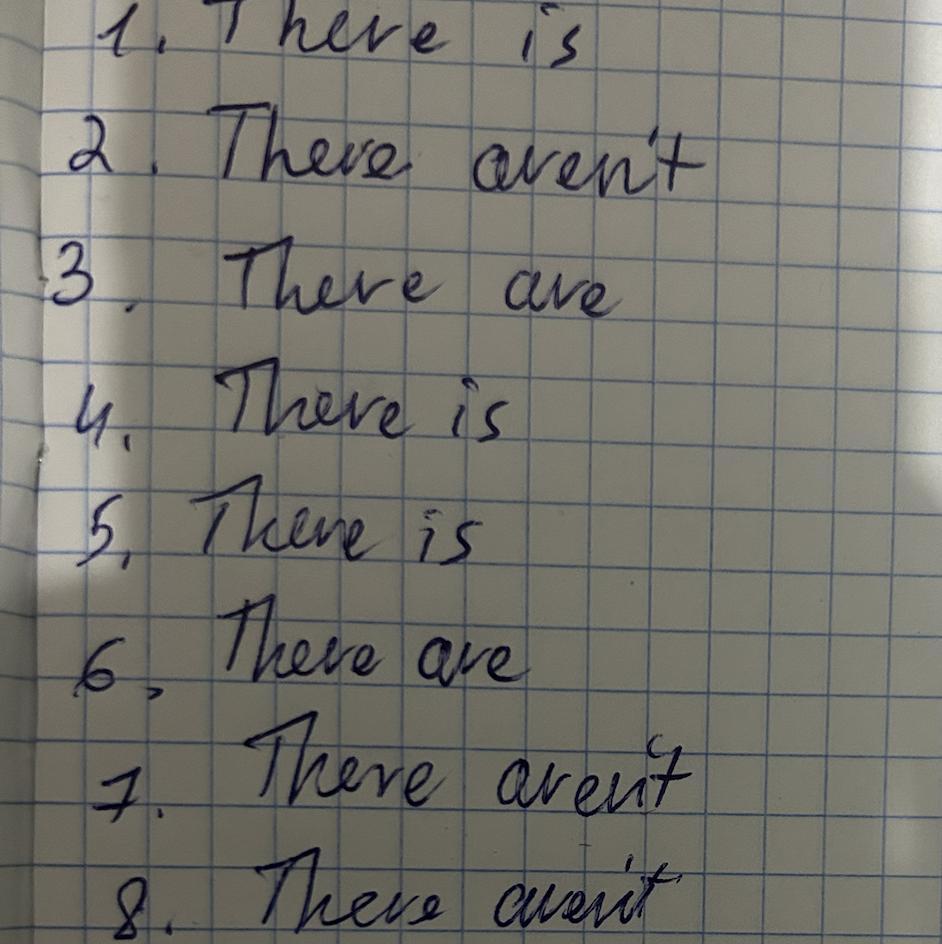 1. There is
2. There aren't
3. There are
4. There is
5. There is
6. There are
7. There aren't
8. There aren't